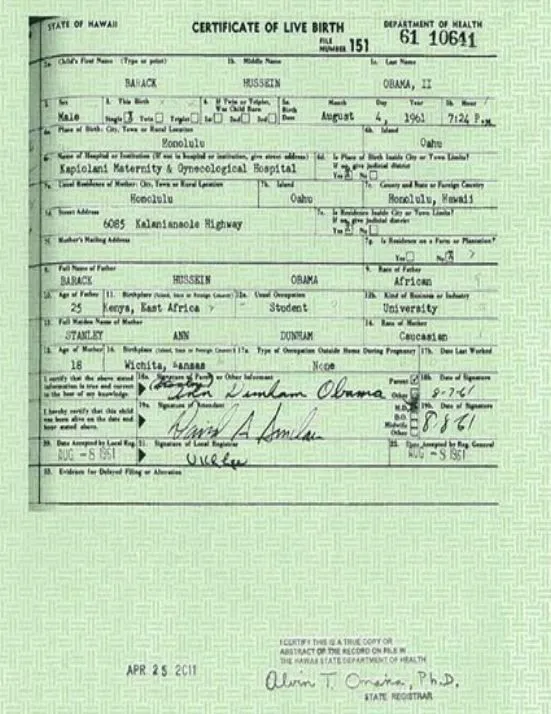 STATE OF HAWAII
CERTIFICATE OF LIVE BIRTH
DEPARTMENT OF HEALTH
FILE NUMBER 151
61 10641
1a. Child's First Name (Type or print) 1b. Middle Name 1c. Last Name
BARACK HUSSEIN OBAMA, II
2. Sex 3. This Birth 4. If Twin or Triplet, Was Child Born 5a. Birth Date Month Day Year 5b. Hour
Male Single X Twin Triplet 1st 2nd 3rd August 4, 1961 7:24 P.M.
6a. Place of Birth: City, Town or Rural Location 6b. Island
Honolulu Oahu
6c. Name of Hospital or Institution (If not in hospital or institution, give street address) 6d. Is Place of Birth Inside City or Town Limits? If no, give judicial district
Kapiolani Maternity & Gynecological Hospital Yes X No
7a. Usual Residence of Mother: City, Town or Rural Location 7b. Island 7c. County and State or Foreign Country
Honolulu Oahu Honolulu, Hawaii
7d. Street Address 7e. Is Residence Inside City or Town Limits? If no, give judicial district
6085 Kalanianaole Highway Yes X No
7f. Mother's Mailing Address 7g. Is Residence on a Farm or Plantation?
Yes No X
8. Full Name of Father 9. Race of Father
BARACK HUSSEIN OBAMA African
10. Age of Father 11. Birthplace (Island, State or Foreign Country) 12a. Usual Occupation 12b. Kind of Business or Industry
25 Kenya, East Africa Student University
13. Full Maiden Name of Mother 14. Race of Mother
STANLEY ANN DUNHAM Caucasian
15. Age of Mother 16. Birthplace (Island, State or Foreign Country) 17a. Type of Occupation Outside Home During Pregnancy 17b. Date Last Worked
18 Wichita, Kansas None
I certify that the above stated information is true and correct to the best of my knowledge. 18a. Signature of Parent or Other Informant Parent Other 18b. Date of Signature
(Stanley) Ann Dunham Obama 8-7-61
I hereby certify that this child was born alive on the date and hour stated above. 19a. Signature of Attendant M.D. D.O. Midwife Other 19b. Date of Signature
David A Sinclair 8-8-61
20. Date Accepted by Local Reg. 21. Signature of Local Registrar 22. Date Accepted by Reg. General
AUG -8 1961 AUG -8 1961
23. Evidence for Delayed Filing or Alteration
APR 25 2011
I CERTIFY THIS IS A TRUE COPY OR
ABSTRACT OF THE RECORD ON FILE IN
THE HAWAII STATE DEPARTMENT OF HEALTH
Alvin T. Onaka, Ph.D.
STATE REGISTRAR